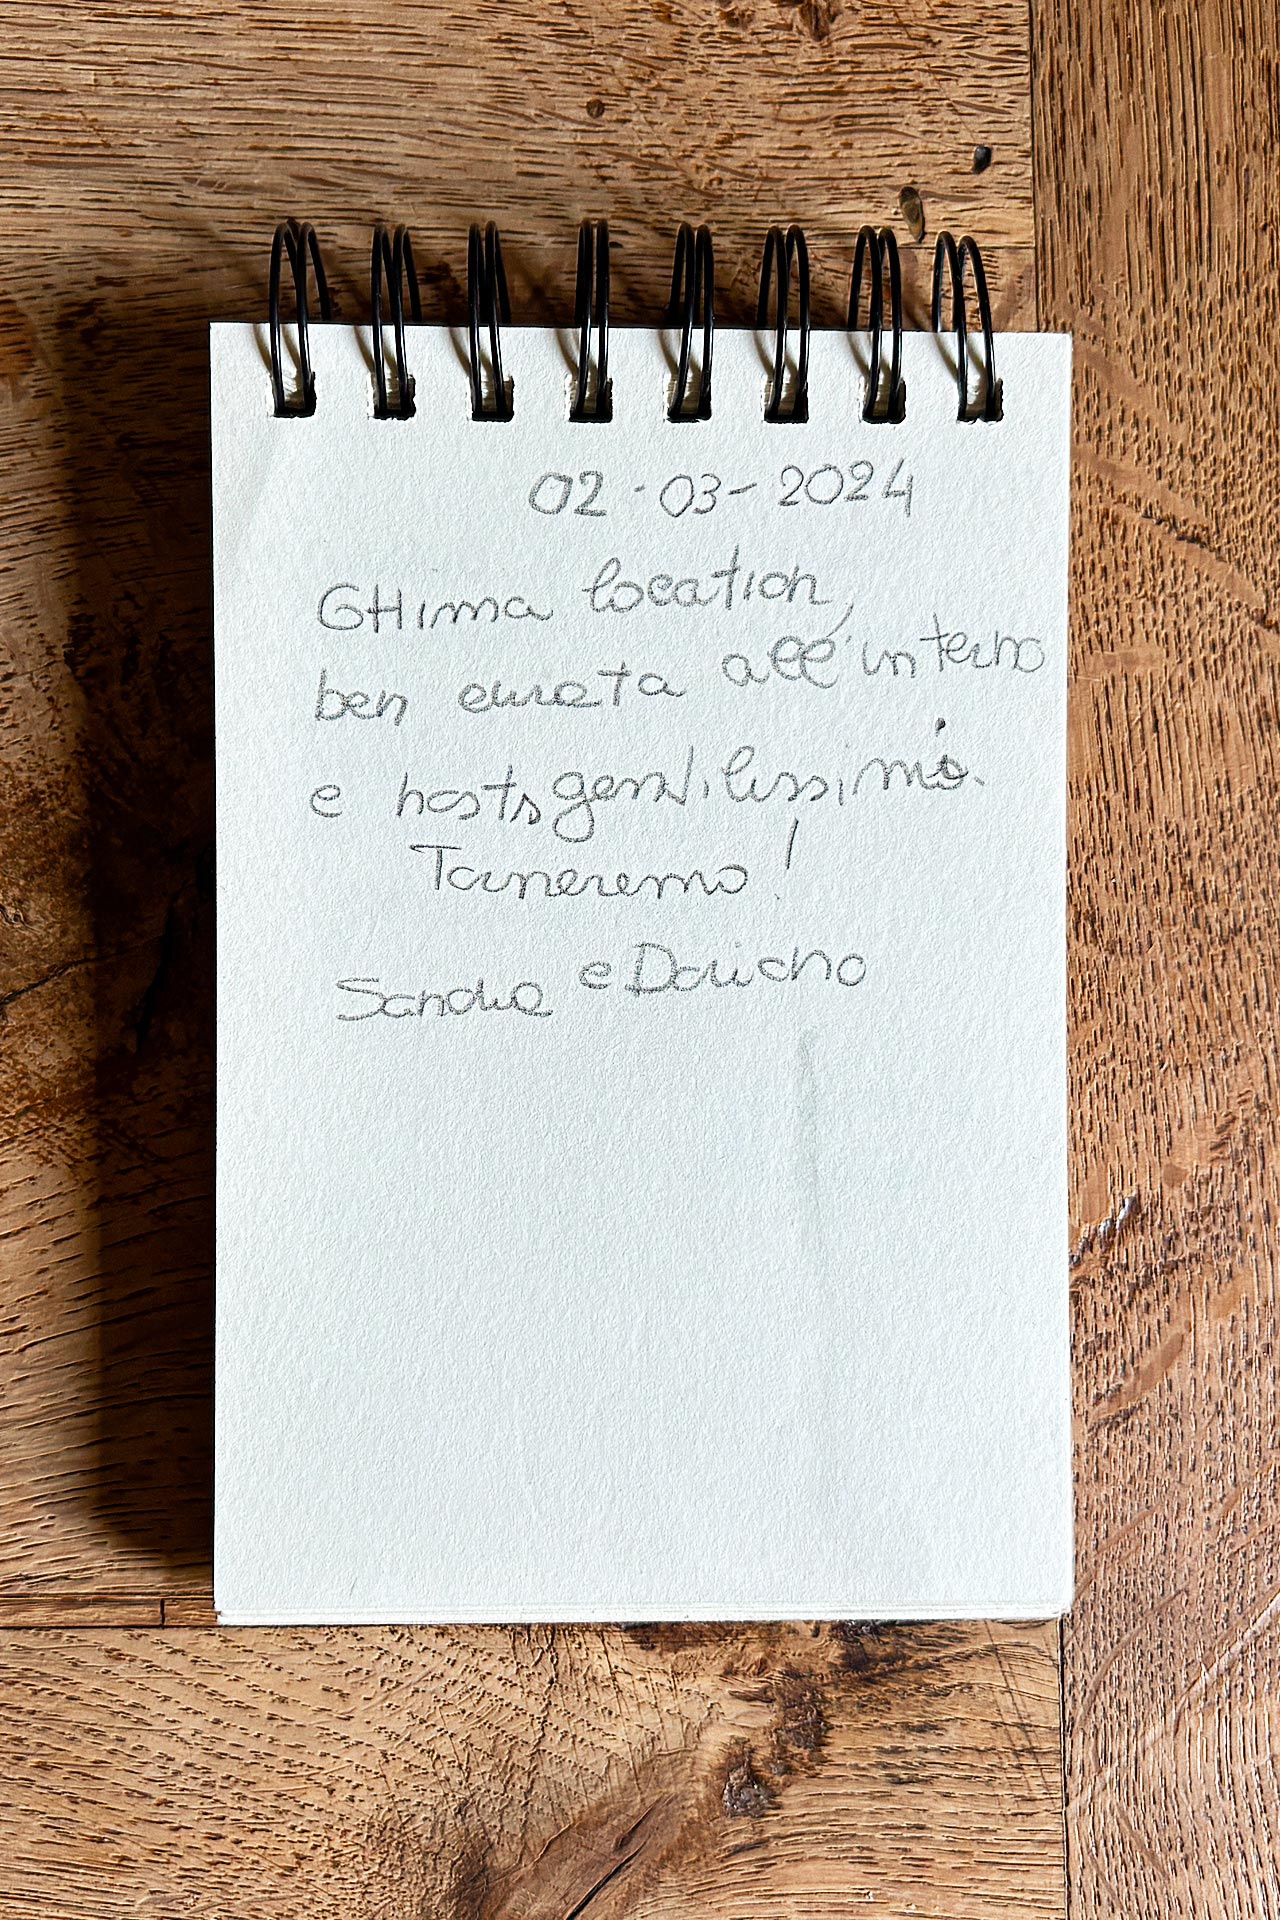 02-03-2024
Ottima location,
ben curata all'interno
e hosts gentilissimi.
Torneremo!
Sandra e